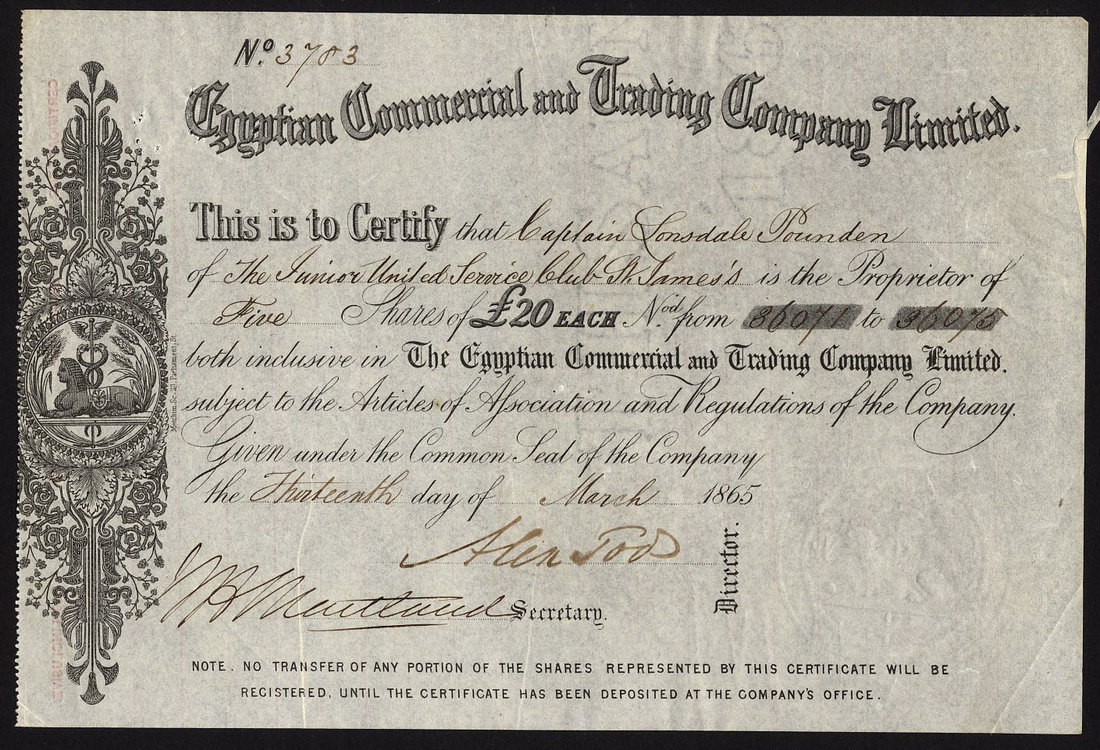 No. 3783
Egyptian Commercial and Trading Company Limited.
This is to Certify that Captain Lonsdale Pounden
of The Junior United Service Club St. James's is the Proprietor of
Five Shares of £20 EACH Nod. from 36071 to 36075
both inclusive in The Egyptian Commercial and Trading Company Limited.
subject to the Articles of Association and Regulations of the Company.
Given under the Common Seal of the Company
the Thirteenth day of March 1865
Alex Tod
Director.
Maitland Secretary.
NOTE. NO TRANSFER OF ANY PORTION OF THE SHARES REPRESENTED BY THIS CERTIFICATE WILL BE
REGISTERED, UNTIL THE CERTIFICATE HAS BEEN DEPOSITED AT THE COMPANY'S OFFICE.